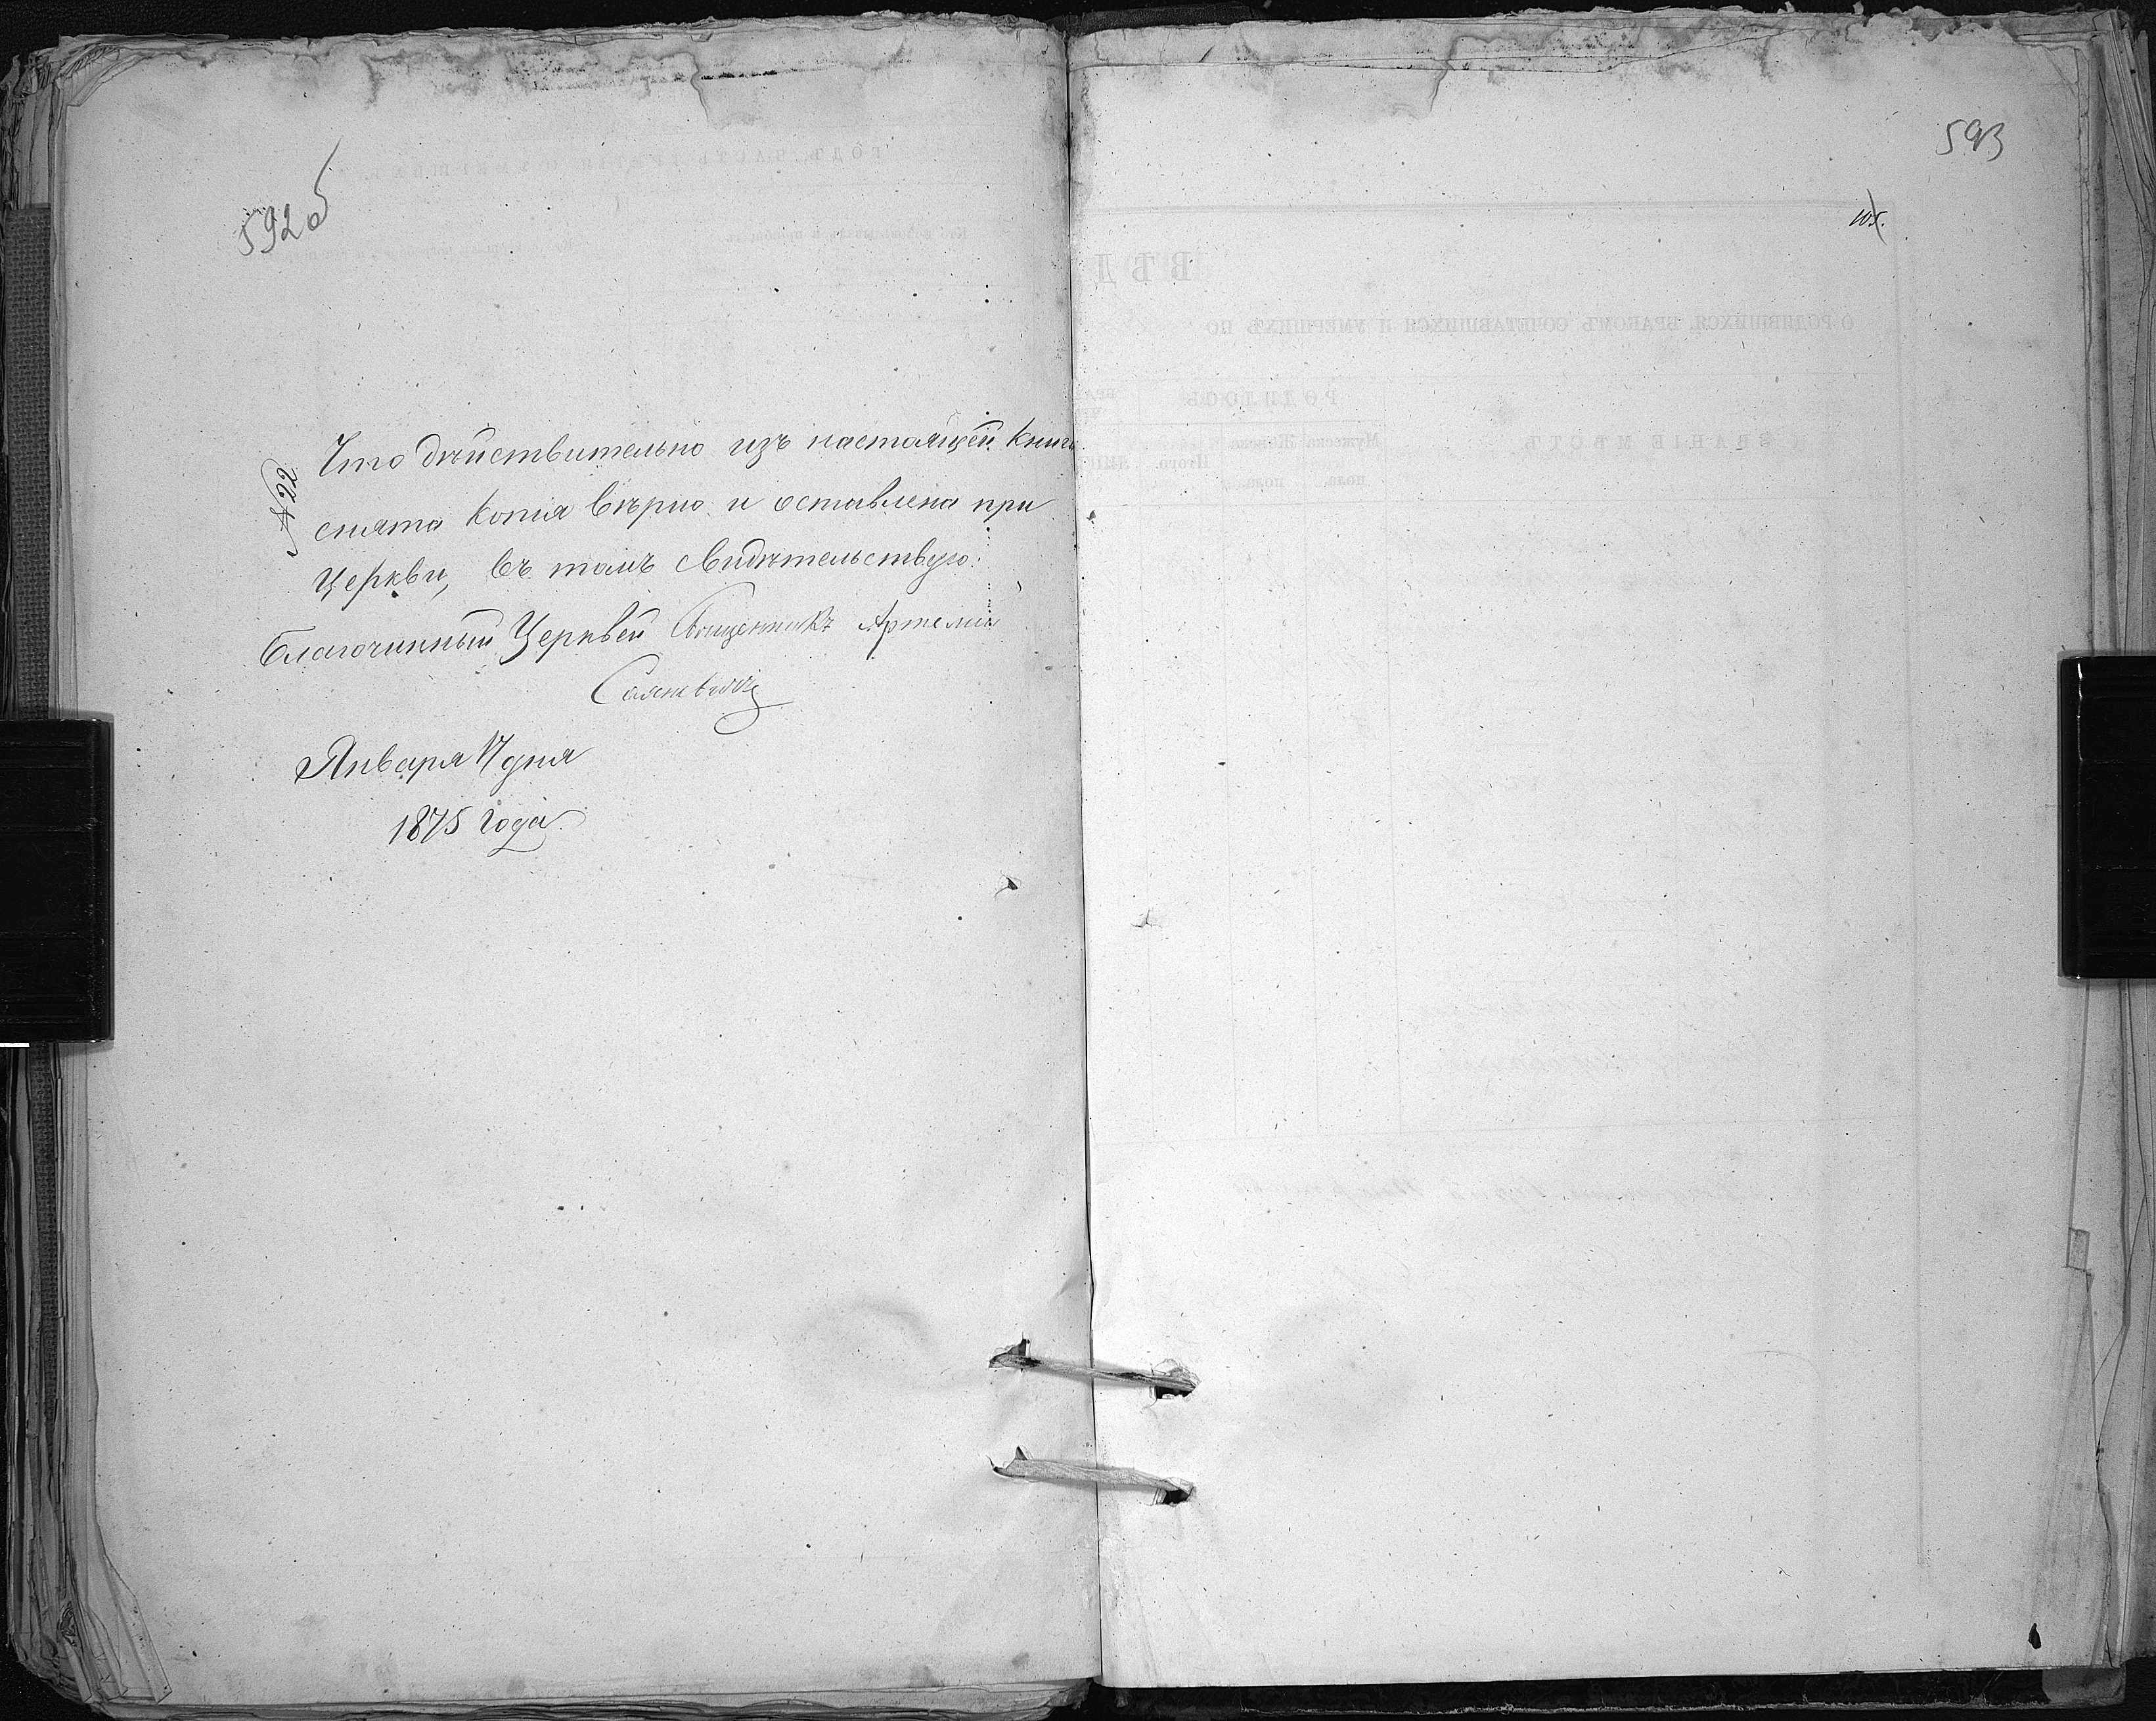 592об
№ 22
Что дѣйствительно изъ настоящей книги
снята копія вѣрно и оставлена при
Церкви, въ томъ свидѣтельствую:
Благочинный Церквей Священникъ Артемій
Января 17 дня
1875 года.
593
105.